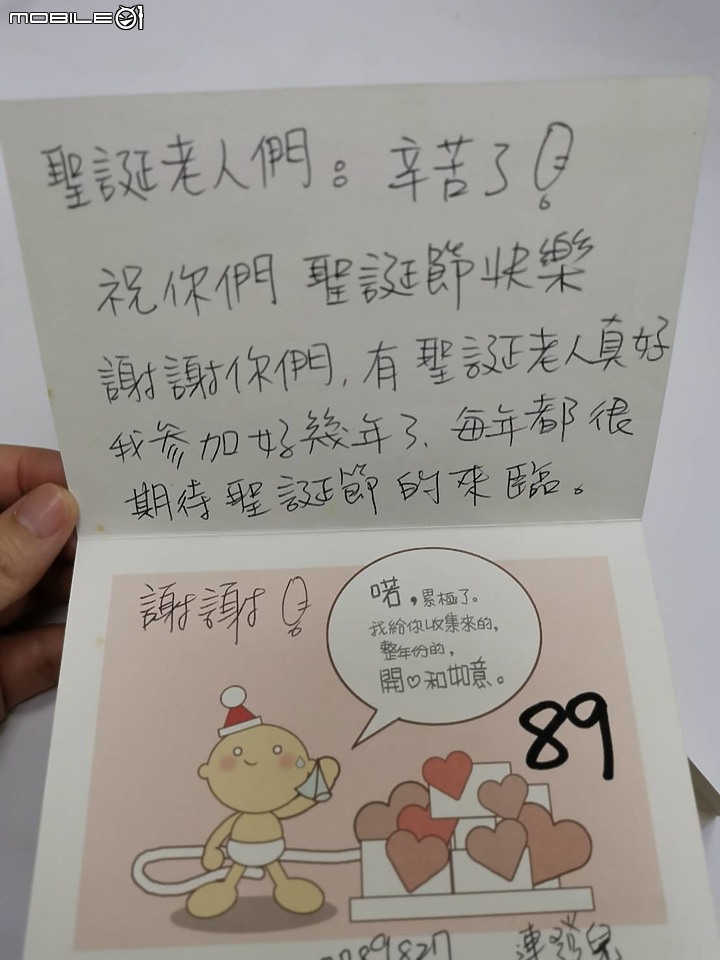 MOBILE01
聖誕老人們：辛苦了！
祝你們 聖誕節快樂
謝謝你們，有聖誕老人真好
我參加好幾年了、每年都很
期待聖誕節的來臨。
謝謝！
喏，累極了。
我給你收集來的，
整年份的，
開♡和如意。
89